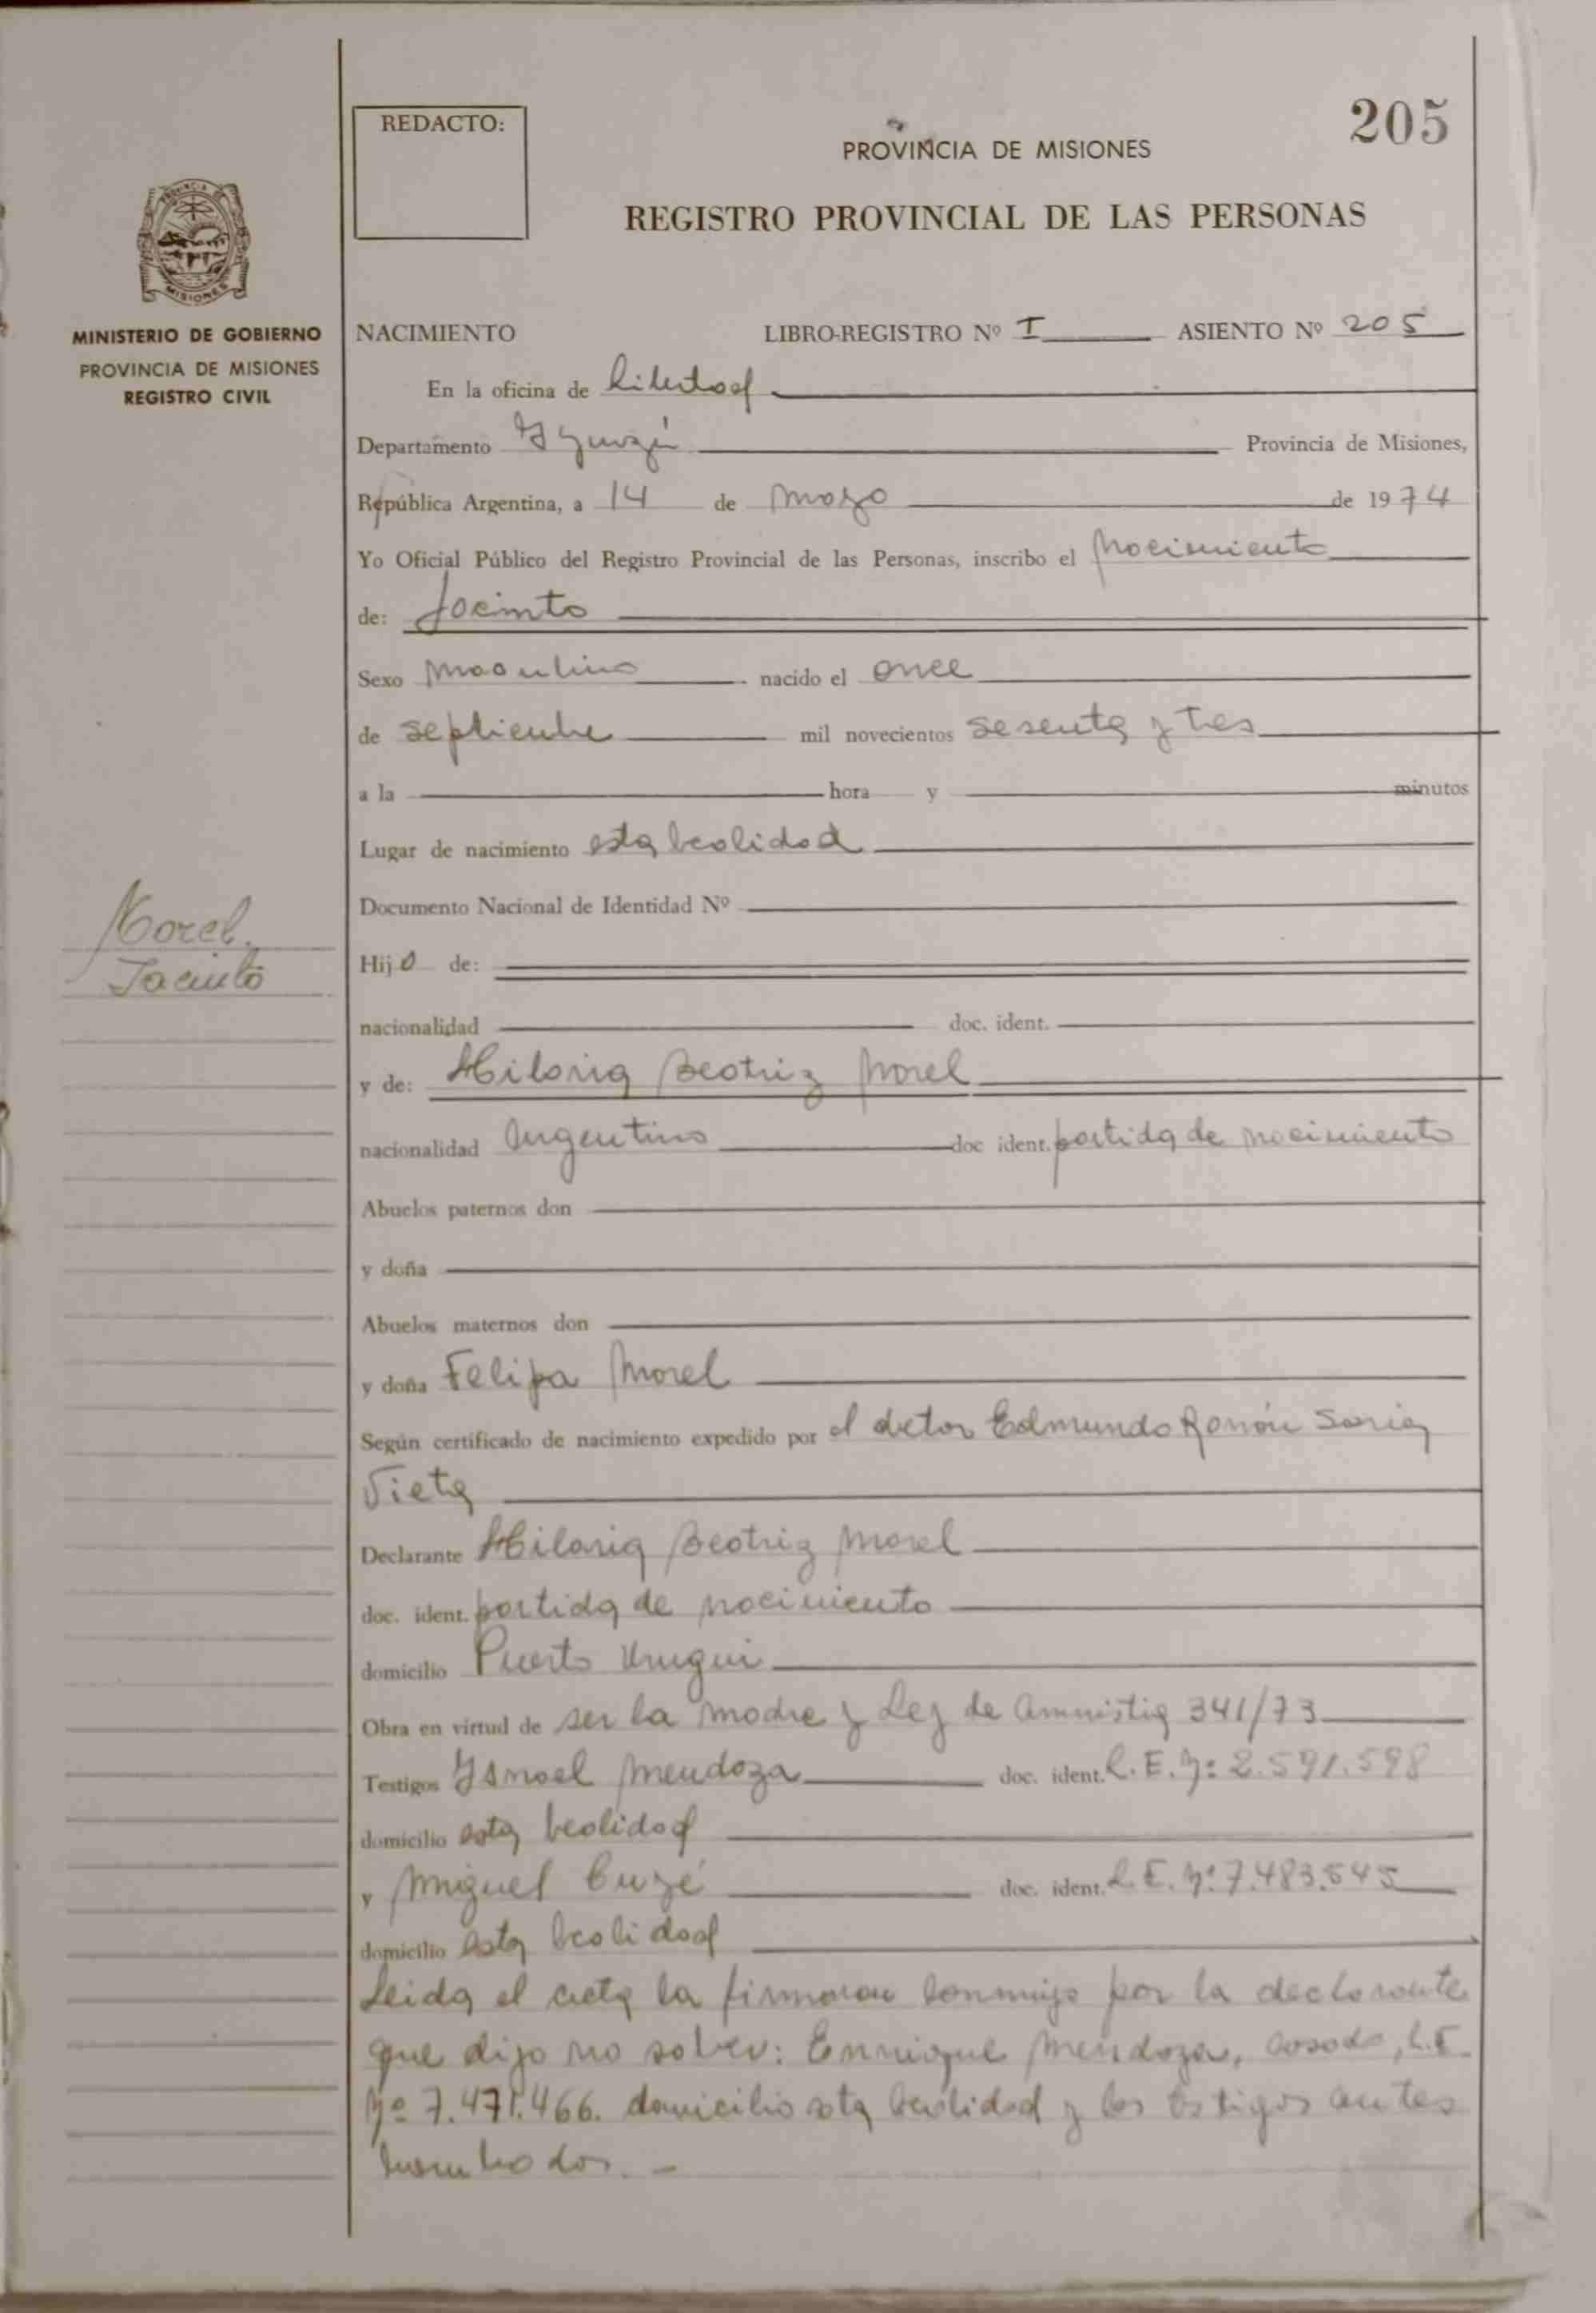 205
REDACTO:
PROVINCIA DE MISIONES
REGISTRO PROVINCIAL DE LAS PERSONAS
PROVINCIA DE
MISIONES
MINISTERIO DE GOBIERNO
PROVINCIA DE MISIONES
REGISTRO CIVIL
NACIMIENTO LIBRO-REGISTRO Nº I ASIENTO Nº 205
En la oficina de Libertad
Departamento Yguazú Provincia de Misiones,
República Argentina, a 14 de mayo de 1974
Yo Oficial Público del Registro Provincial de las Personas, inscribo el nacimiento
de: Jacinto
Sexo masculino nacido el once
de septiembre mil novecientos sesenta y tres
a la hora y minutos
Lugar de nacimiento esta localidad
Documento Nacional de Identidad Nº
Morel
Jacinto
Hijo de:
nacionalidad doc. ident.
y de: Hilaria Beatriz Morel
nacionalidad Argentina doc ident. partida de nacimiento
Abuelos paternos don
y doña
Abuelos maternos don
y doña Felipa Morel
Según certificado de nacimiento expedido por el doctor Edmundo Ramón Soria
Vieta
Declarante Hilaria Beatriz Morel
doc. ident. partida de nacimiento
domicilio Puerto
Obra en virtud de ser la madre y Ley de Amnistia 341/73
Testigos Ismael Mendoza doc. ident. L.E. Nº 2.591.598
domicilio esta localidad
y Miguel doc. ident. L.E. Nº 7.483.545
domicilio esta localidad
Leida el acta la firmaron conmigo por la declarante
que dijo no saber: Enrrique Mendoza, casado, L.E.
Nº 7.471.466. domicilio esta localidad y los testigos antes
nombrados. -